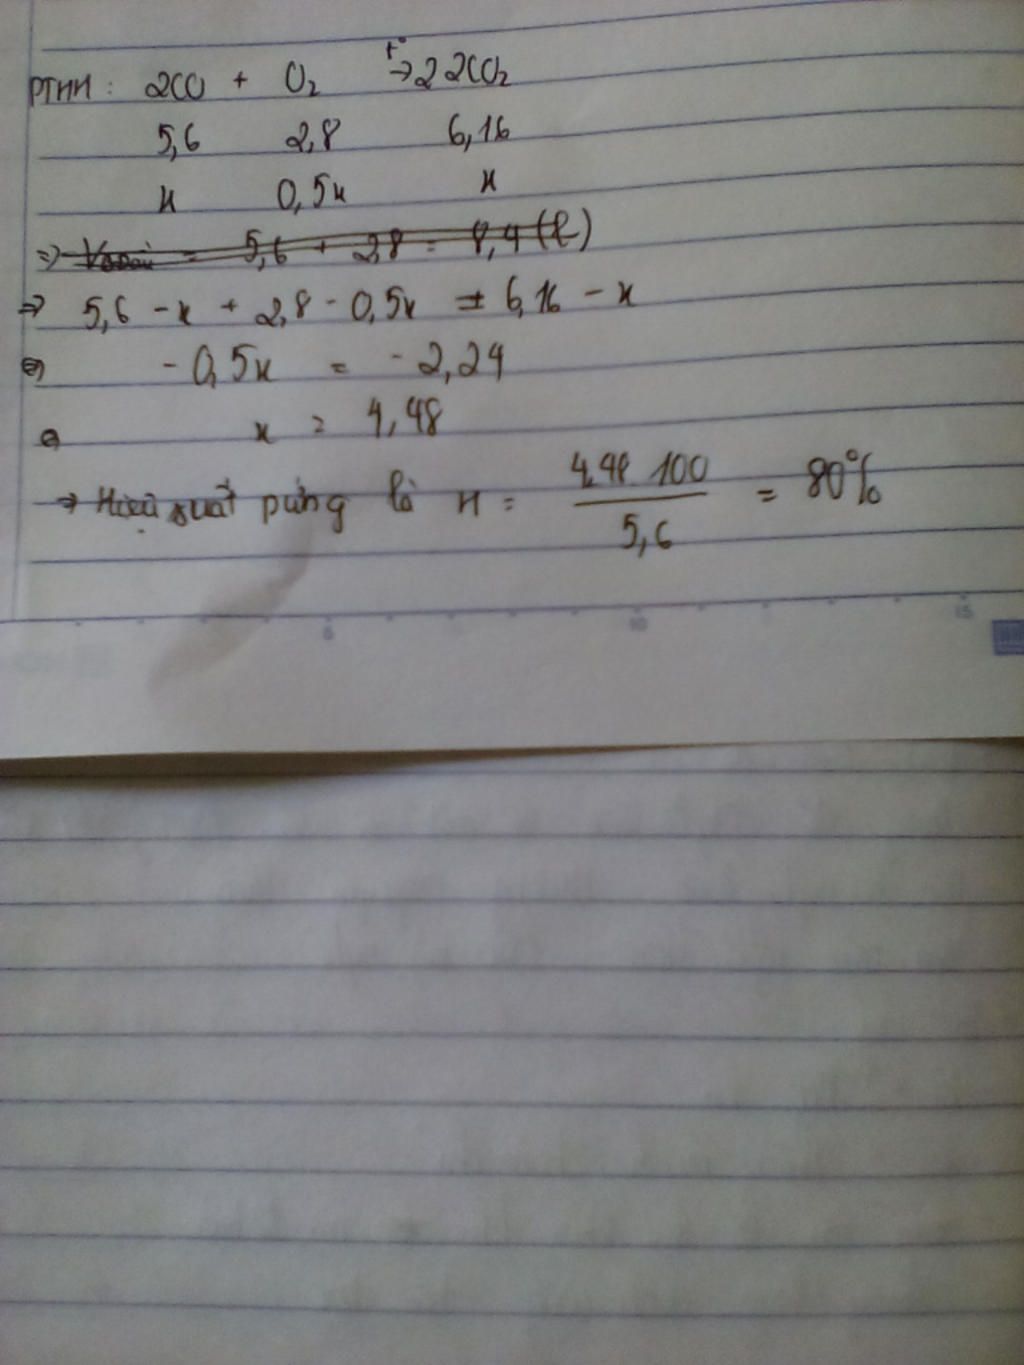 PTHH: 2CO + O₂ t°→ 2 2CO₂
5,6 2,8 6,16
x 0,5x x
=> = 5,6 + 2,8 = 8,4 (l)
=> 5,6 - x + 2,8 - 0,5x = 6,16 - x
⇔ - 0,5x = - 2,24
⇔ x = 4,48
→ Hiệu suất pứng là H = 4,48.100 / 5,6 = 80%
5 10 15